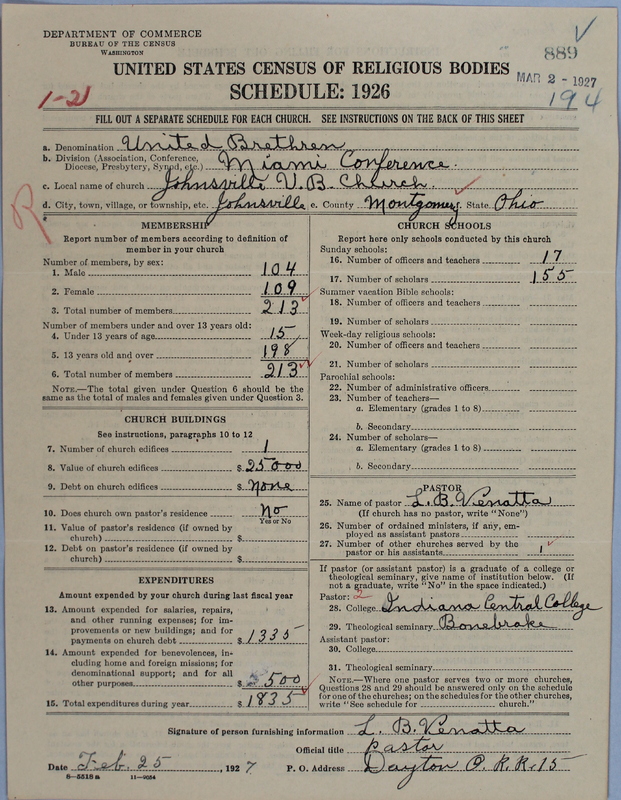 DEPARTMENT OF COMMERCE
BUREAU OF THE CENSUS
WASHINGTON
889
MAR 2 - 1927
194
UNITED STATES CENSUS OF RELIGIOUS BODIES
SCHEDULE: 1926
1-21
FILL OUT A SEPARATE SCHEDULE FOR EACH CHURCH. SEE INSTRUCTIONS ON THE BACK OF THIS SHEET
a. Denomination United Brethren
b. Division (Association, Conference, Diocese, Presbytery, Synod, etc.) Miami Conference.
c. Local name of church Johnsville U.B. Church.
d. City, town, village, or township, etc. Johnsville e. County Montgomery State Ohio
R
MEMBERSHIP
Report number of members according to definition of
member in your church
Number of members, by sex:
1. Male 104
2. Female 109
3. Total number of members 213
Number of members under and over 13 years old:
4. Under 13 years of age 15
5. 13 years old and over 198
6. Total number of members 213
NOTE.—The total given under Question 6 should be
same as the total of males and females given under Question 3.
CHURCH BUILDINGS
See instructions, paragraphs 10 to 12
7. Number of church edifices 1
8. Value of church edifices $ 25000
9. Debt on church edifices $ None
10. Does church own pastor's residence No
Yes or No
11. Value of pastor's residence (if owned by
church) $
12. Debt on pastor's residence (if owned by
church) $
EXPENDITURES
Amount expended by your church during last fiscal year
13. Amount expended for salaries, repairs,
and other running expenses; for im-
provements or new buildings; and for
payments on church debt $ 1335
14. Amount expended for benevolences, in-
cluding home and foreign missions; for
denominational support; and for all
other purposes $ 500
15. Total expenditures during year $ 1835
CHURCH SCHOOLS
Report here only schools conducted by this church
Sunday schools:
16. Number of officers and teachers 17
17. Number of scholars 155
Summer vacation Bible schools:
18. Number of officers and teachers
19. Number of scholars
Week-day religious schools:
20. Number of officers and teachers
21. Number of scholars
Parochial schools:
22. Number of administrative officers
23. Number of teachers—
a. Elementary (grades 1 to 8)
b. Secondary
24. Number of scholars—
a. Elementary (grades 1 to 8)
b. Secondary
PASTOR
25. Name of pastor L. B. Venatta
(If church has no pastor, write "None")
26. Number of ordained ministers, if any, em-
ployed as assistant pastors
27. Number of other churches served by the
pastor or his assistants 1
If pastor (or assistant pastor) is a graduate of a college or
theological seminary, give name of institution below. (If
not a graduate, write "No" in the space indicated.)
Pastor: 2
28. College Indiana Central College
29. Theological seminary Bonebrake
Assistant pastor:
30. College
31. Theological seminary
NOTE.—Where one pastor serves two or more churches,
Questions 28 and 29 should be answered only on the schedule
for one of the churches; on the schedules for the other churches,
write "See schedule for church."
Signature of person furnishing information L. B. Venatta
Official title Pastor
Date Feb. 25, 1927 P. O. Address Dayton O. R.R. 15
6—5518a 11—9054